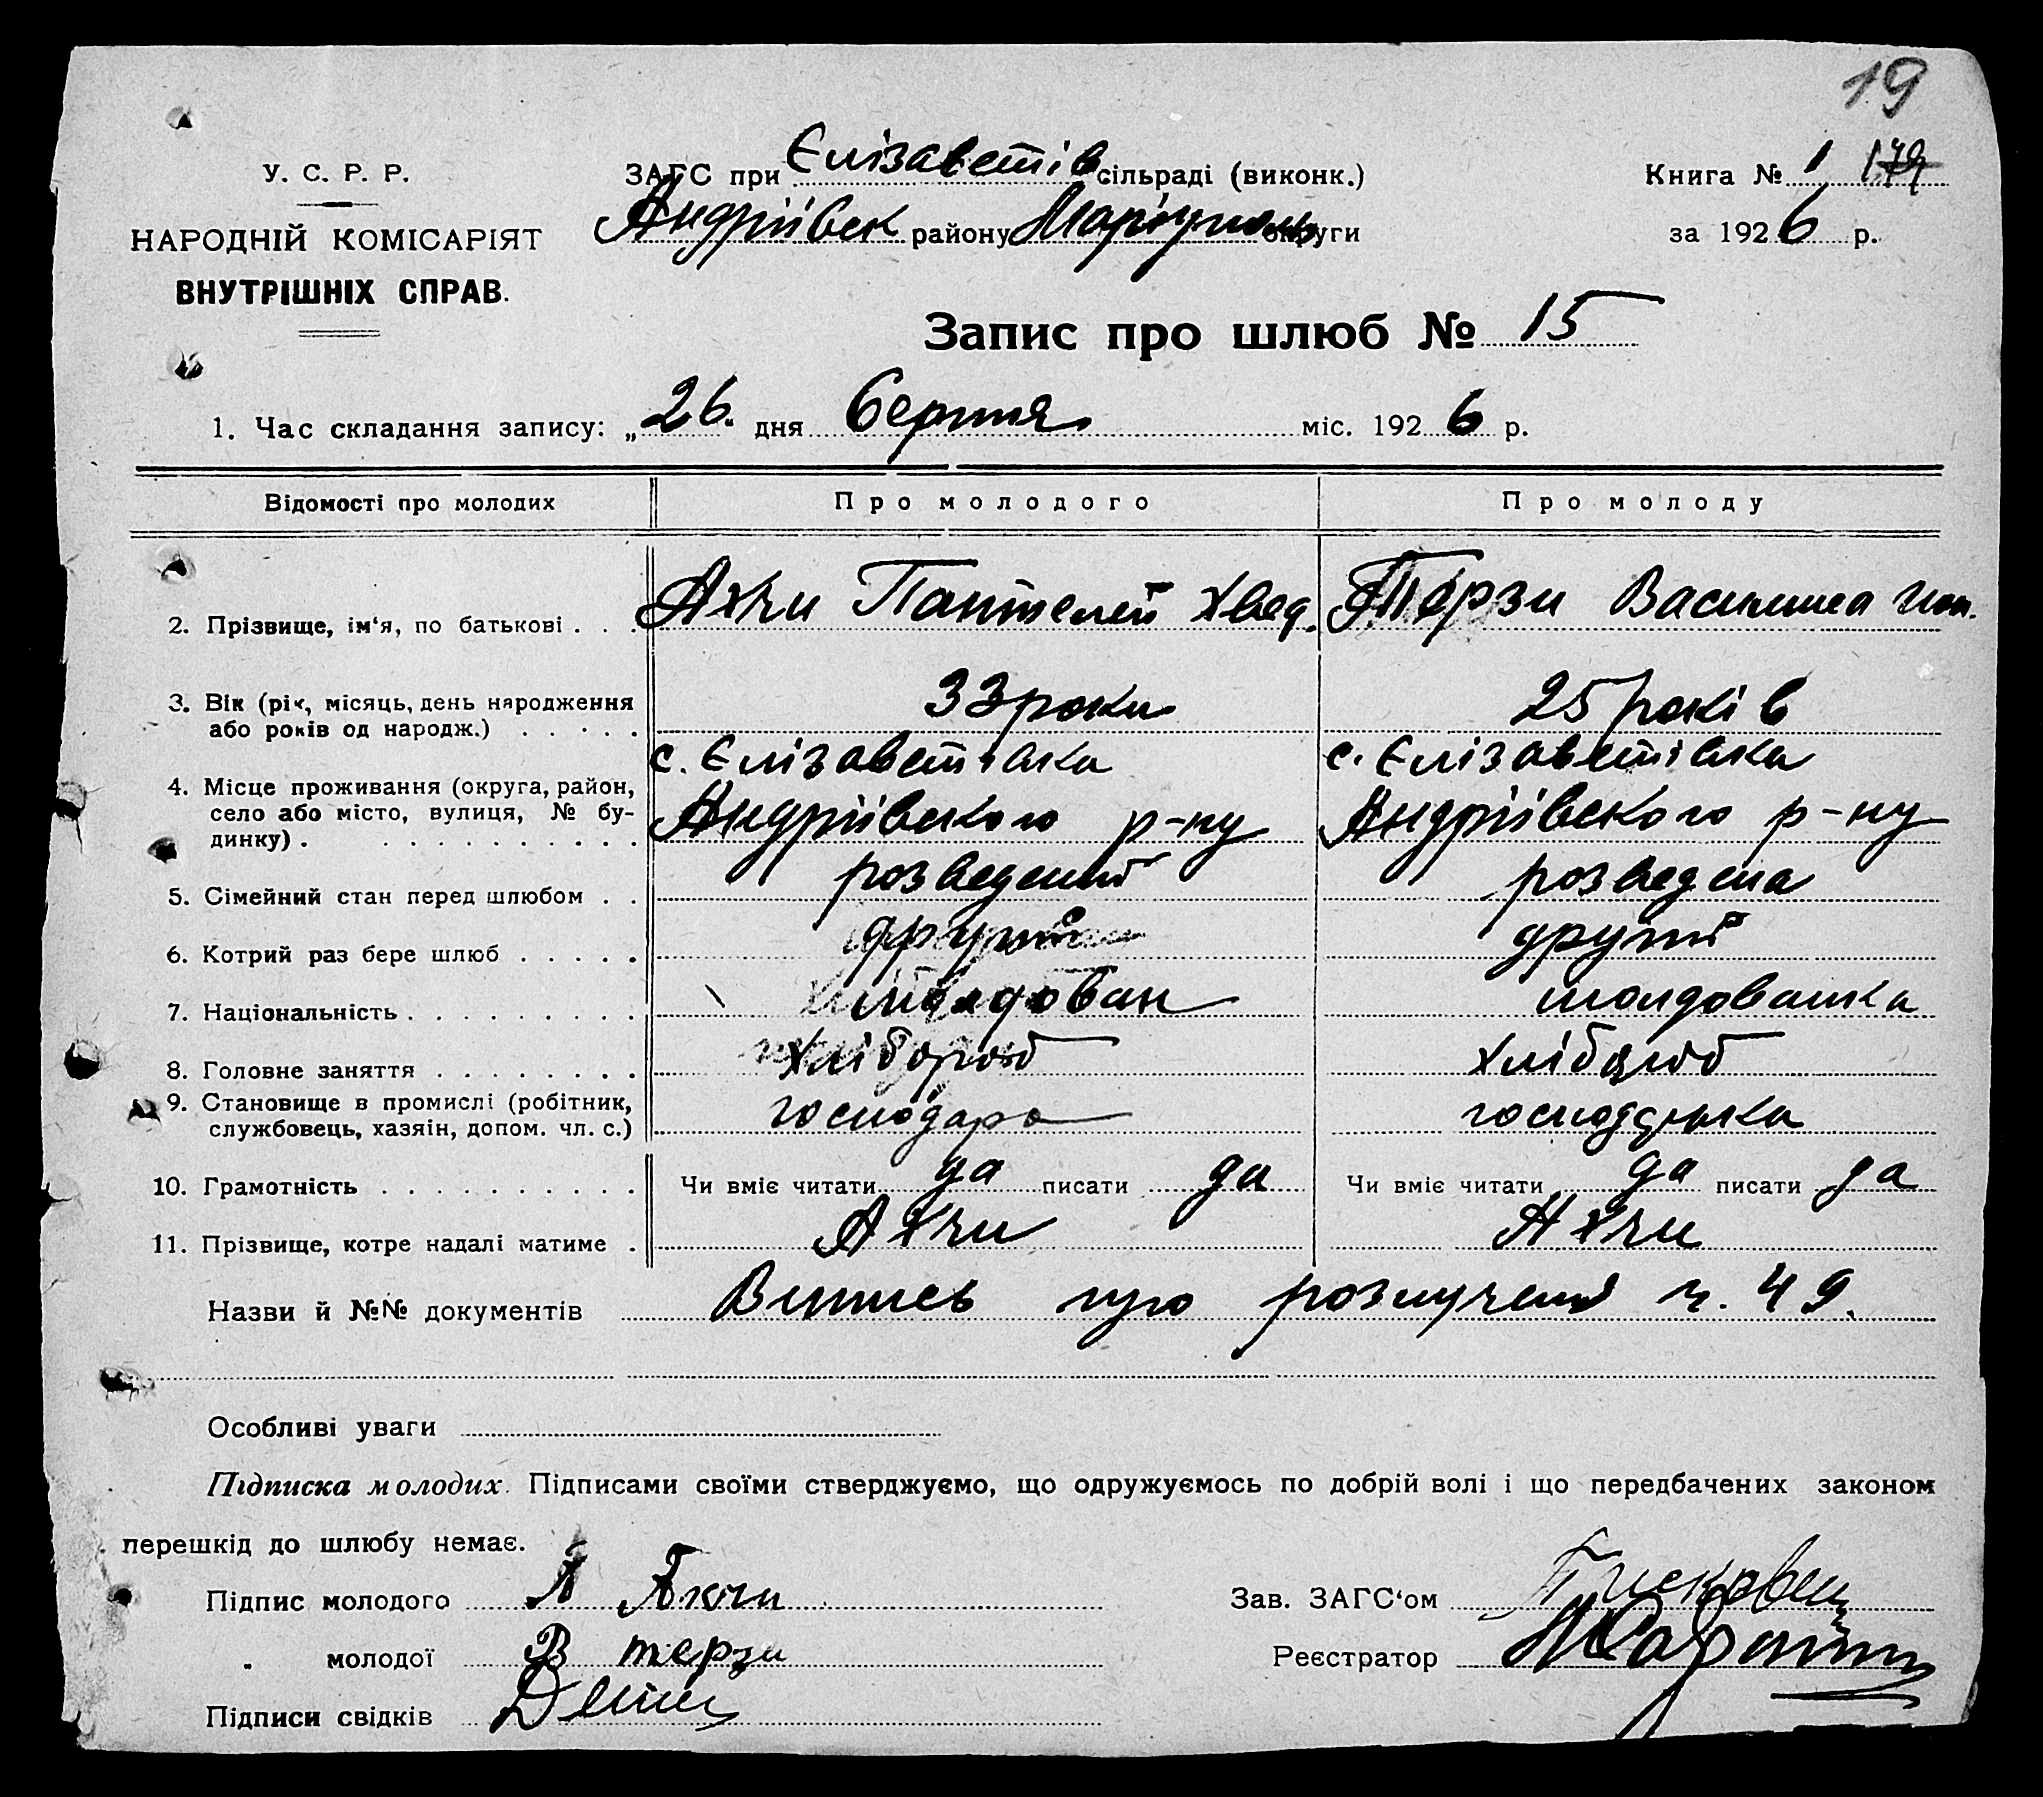 19
У. С. Р. Р.
НАРОДНІЙ КОМІСАРІЯТ
ВНУТРІШНІХ СПРАВ.
ЗАГС при Єлізаветів сільраді (виконк.)
Андріівск району Маріупіль округи
Книга № 1 179
за 1926 р.
Запис про шлюб № 15
1. Час складання запису: „26“ дня Серпня міс. 1926 р.
Відомості про молодих Про молодого Про молоду
2. Прізвище, ім‘я, по батькові . . . Ахчи Пантелей Хвед. Терзи Василина
3. Вік (рік, місяць, день народження
або років од народж.) . . . . . 33 роки 25 років
4. Місце проживання (округа, район,
село або місто, вулиця, № бу-
динку) . . . . . . . . . . .
с. Єлізаветівка
Андріівского р-ну
с. Єлізаветівка
Андріівского р-ну
5. Сімейний стан перед шлюбом . . розведений розведена
6. Котрий раз бере шлюб . . . . . другий другий
7. Національність . . . . . . . . . молдован молдованка
8. Головне заняття . . . . . . . . хлібороб хлібороб
9. Становище в промислі (робітник,
службовець, хазяін, допом. чл. с.) господарь
10. Грамотність . . . . . . . . . . Чи вміє читати да писати да Чи вміє читати да писати да
11. Прізвище, котре надалі матиме . Ахчи Ахчи
Назви й №№ документів Випись про розлученя ч. 49.
Особливі уваги
Підписка молодих. Підписами своїми стверджуємо, що одружуємось по добрій волі і що передбачених законом
перешкід до шлюбу немає.
Підпис молодого Акчи
Зав. ЗАГС‘ом
„ молодої В терзи
Реєстратор
Підписи свідків